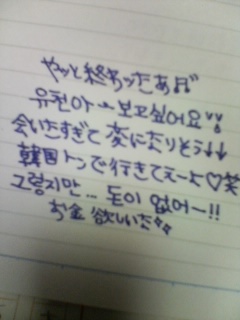 やっと終わったあ♬
유천아~보고싶어요!!
会いたすぎて変になりそう↓↓
韓国トンで行きてぇーよ♡笑
그렇지만... 돈이 없어~!!
お金欲しいな